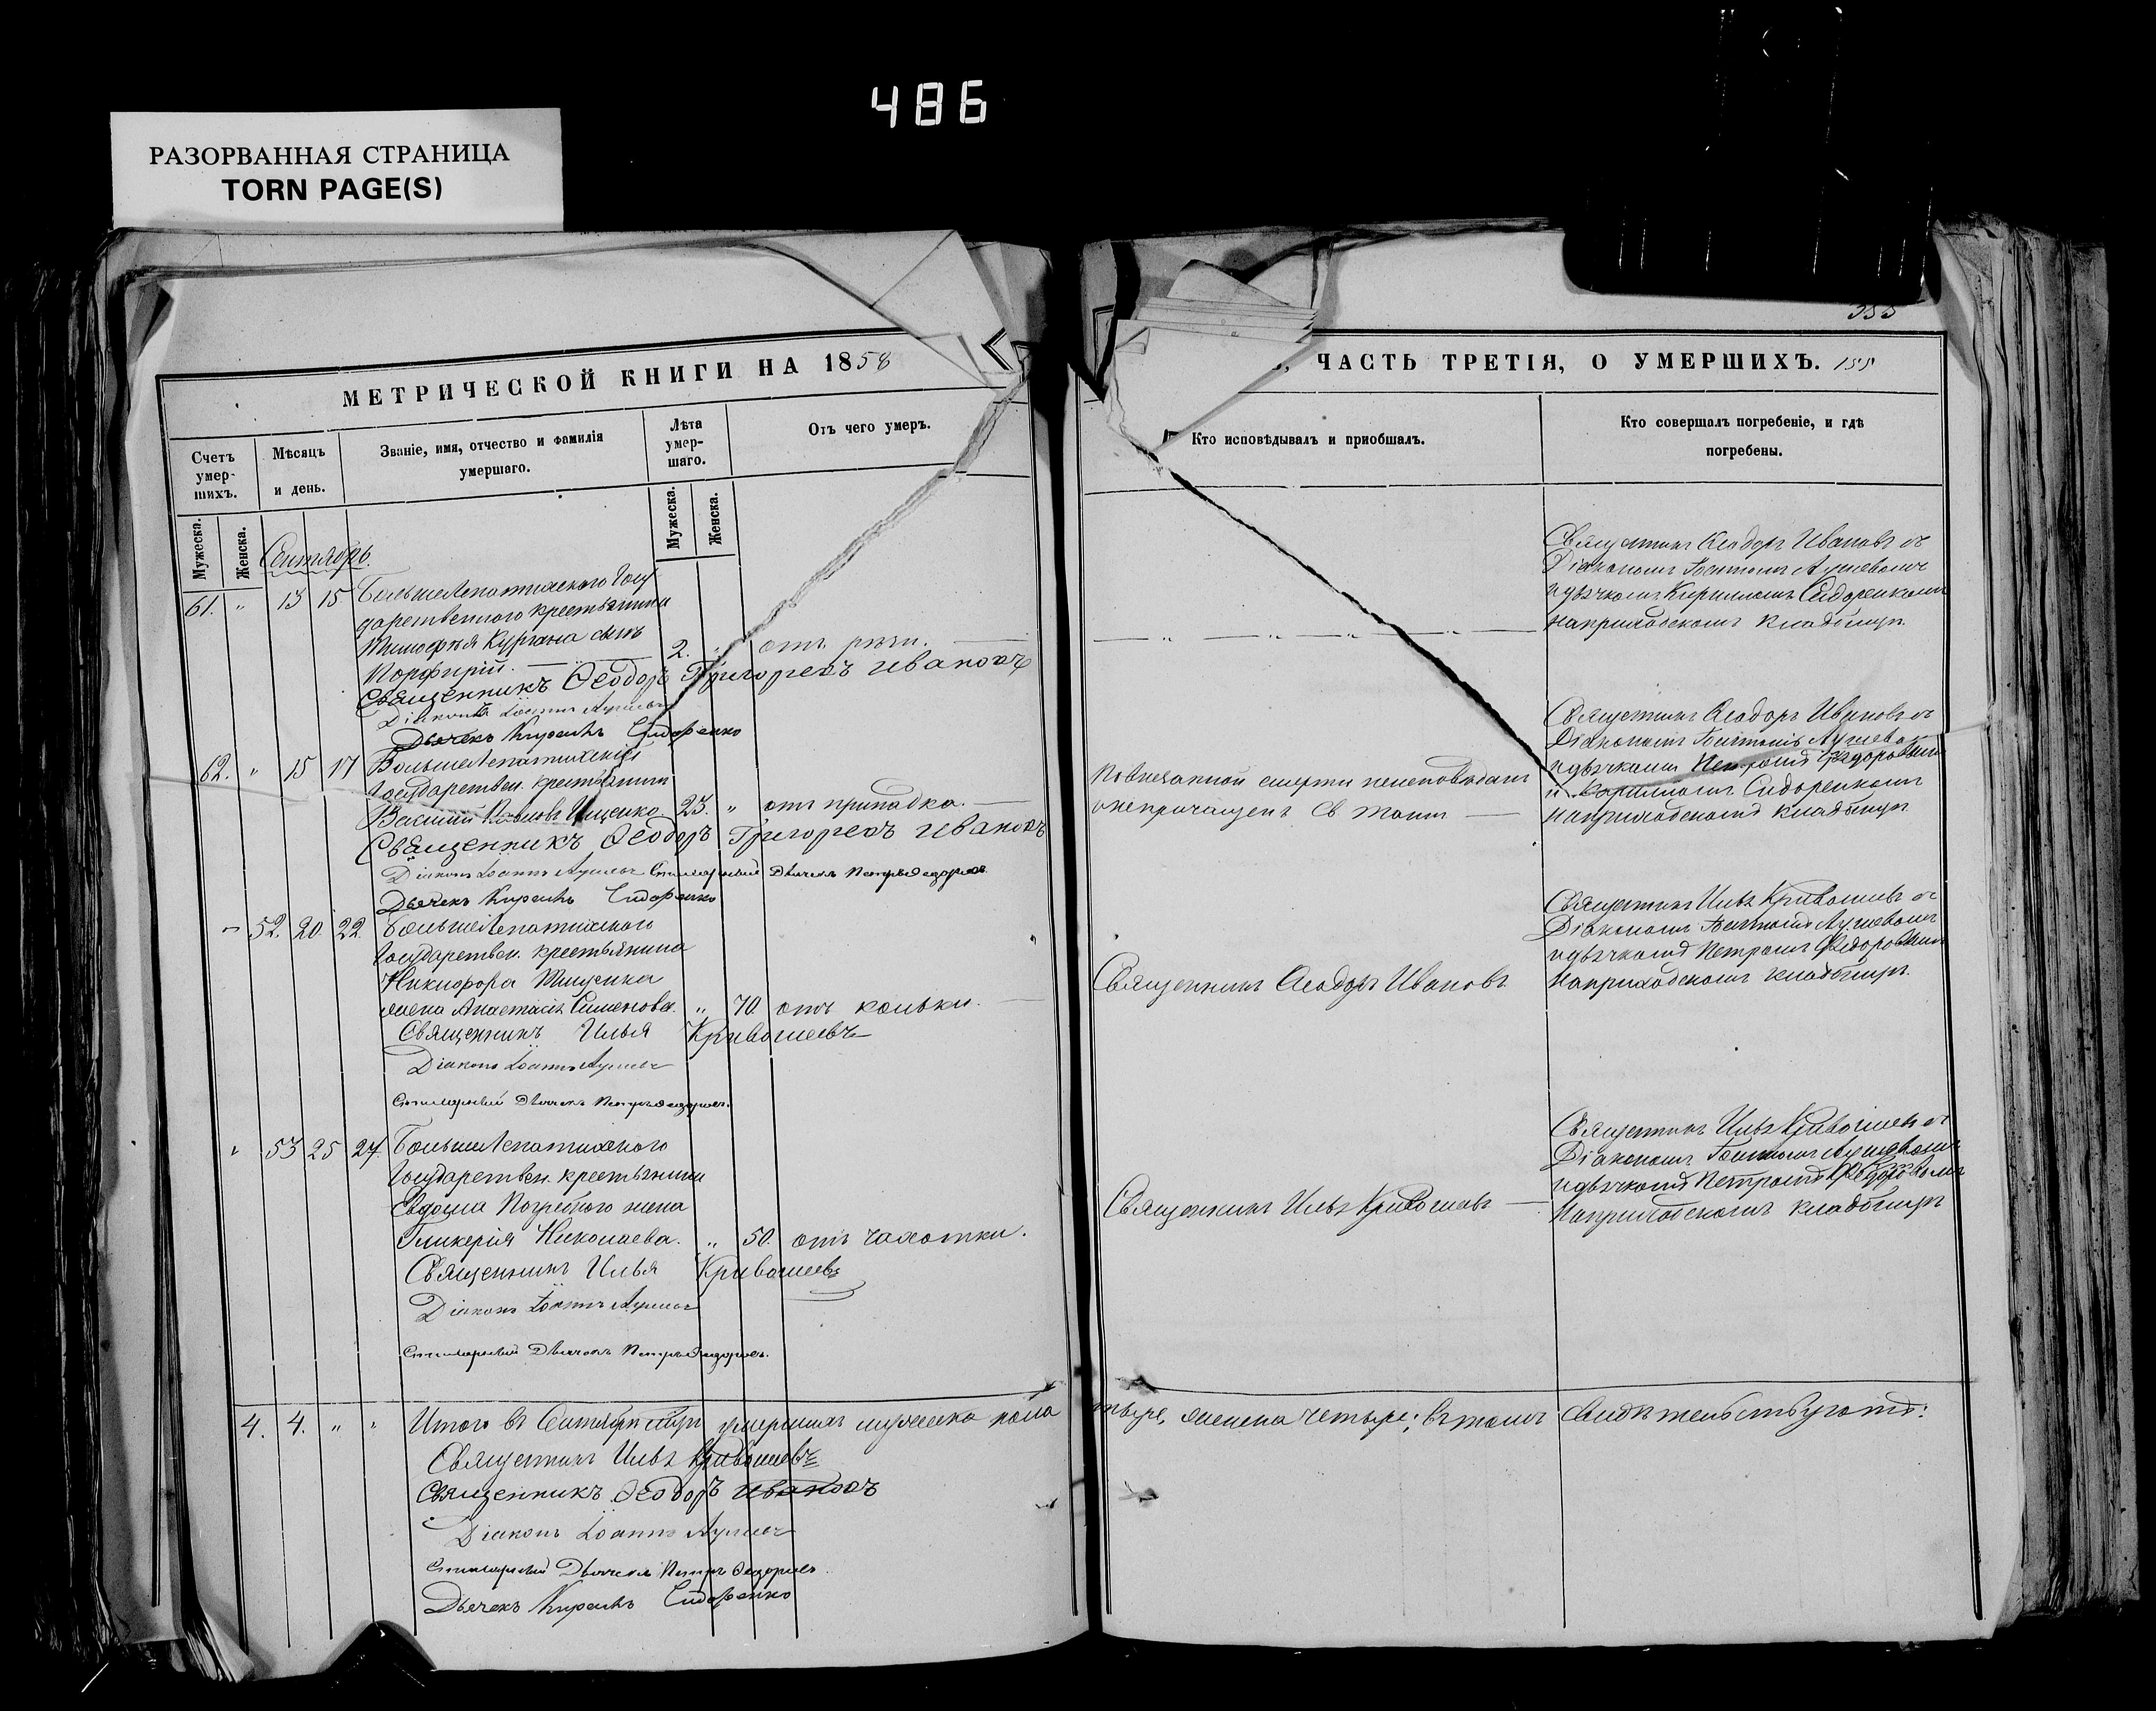 486
РАЗОРВАННАЯ СТРАНИЦА
TORN PAGE(S)
МЕТРИЧЕСКОЙ КНИГИ НА 1858
Счетъ умер-шихъ.
Мѣсяцъ и день.
Званіе, имя, отчество и фамилія умершаго.
Лѣта умер-шаго.
Отъ чего умеръ.
Мужеска.
Женска.
Мужеска.
Женска.
Сентябрь.
61. " 13 15 БольшеЛепатихского Госу
дарственного крестьянина
Тимофѣя Кургана сынъ
Порфирій. 2. "
Священникъ Ѳеодоръ Григорьевъ Ивановъ
Діаконъ Іоаннъ
Дьячекъ Кирилъ Сидоренко
62. " 15 17 БольшеЛепатихскій
Государствен. крестьянинъ
Василій Павловъ Ищенко 23. " отъ припадка.
Священникъ Ѳеодоръ Григорьевъ Ивановъ
Діаконъ Іоаннъ Стихарный Дьячекъ Петръ Ѳедоровъ
Дьячекъ Кирилъ Сидоренко
" 52. 20. 22. БольшеЛепатихского
Государствен. крестьянина
Никифора Тищенка
жена Анастасія Симеонова. " 70. отъ кольки.
Священникъ Илья Кривошеевъ
Діаконъ Іоаннъ
Стихарный Дьячекъ Петръ Ѳедоровъ.
" 53 25 27. БольшеЛепатихского
Государствен. крестьянина
Евдоима Погребного жена
Гликерія Николаева. " 50. отъ чахотки.
Священникъ Илья Кривошеевъ
Діаконъ Іоаннъ
Стихарный Дьячекъ Петръ Ѳедоровъ.
4. 4. " " Итого въ Сентябрѣ мцѣ умершихъ мужеска пола
Священникъ Илья Кривошеевъ
Священникъ Ѳеодоръ Ивановъ
Діаконъ Іоаннъ
Стихарный Дьячекъ Петръ Ѳедоровъ
Дьячекъ Кирилъ Сидоренко
, ЧАСТЬ ТРЕТІЯ, О УМЕРШИХЪ. 155
Кто исповѣдывалъ и приобщалъ.
Кто совершалъ погребеніе, и гдѣ
погребены.
Священникъ Ѳеодоръ Ивановъ съ
Діакономъ Іоанномъ
и дьячкомъ Кириломъ Сидоренкомъ
на приходскомъ кладбищѣ.
По внезапной смерти неисповѣданъ
и непричащенъ Св Таинъ
Священникъ Ѳеодоръ Ивановъ съ
Діакономъ Іоанномъ
и дьячкомъ Петромъ Ѳедоровымъ
и Кириломъ Сидоренкомъ
на приходскомъ кладбищѣ
Священникъ Ѳеодоръ Ивановъ
Священникъ Илья Кривошеевъ съ
Діакономъ Іоанномъ
и дьячкомъ Петромъ Ѳедоровымъ
на приходскомъ кладбищѣ.
Священникъ Илья Кривошеевъ
Священникъ Илья Кривошеевъ съ
Діакономъ Іоанномъ
и дьячкомъ Петромъ Ѳедоровымъ
на приходскомъ кладбищѣ
тыре, женска четыре; въ томъ свидѣтельствуютъ: